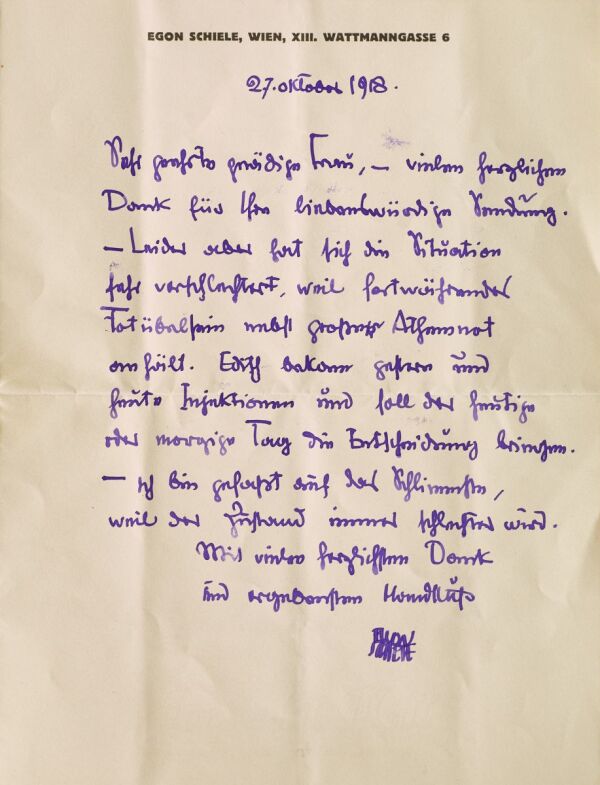 EGON SCHIELE, WIEN, XIII. WATTMANNGASSE 6
27. Oktober 1918.
Sehr geehrte gnädige Frau, — vielen herzlichen
Dank für Ihre liebenswürdige Sendung.
— Leider aber hat sich die Situation
sehr verschlechtert, weil fortwährendes
Totübelsein nebst großer Athemnot
anhält. Edith bekam gestern und
heute Injektionen und soll der heutige
oder morgige Tag die Entscheidung bringen.
— Ich bin gefaßt auf das Schlimmste,
weil der Zustand immer schlechter wird.
Mit vielen herzlichsten Dank
und ergebensten Handkuß
EGON SCHIELE